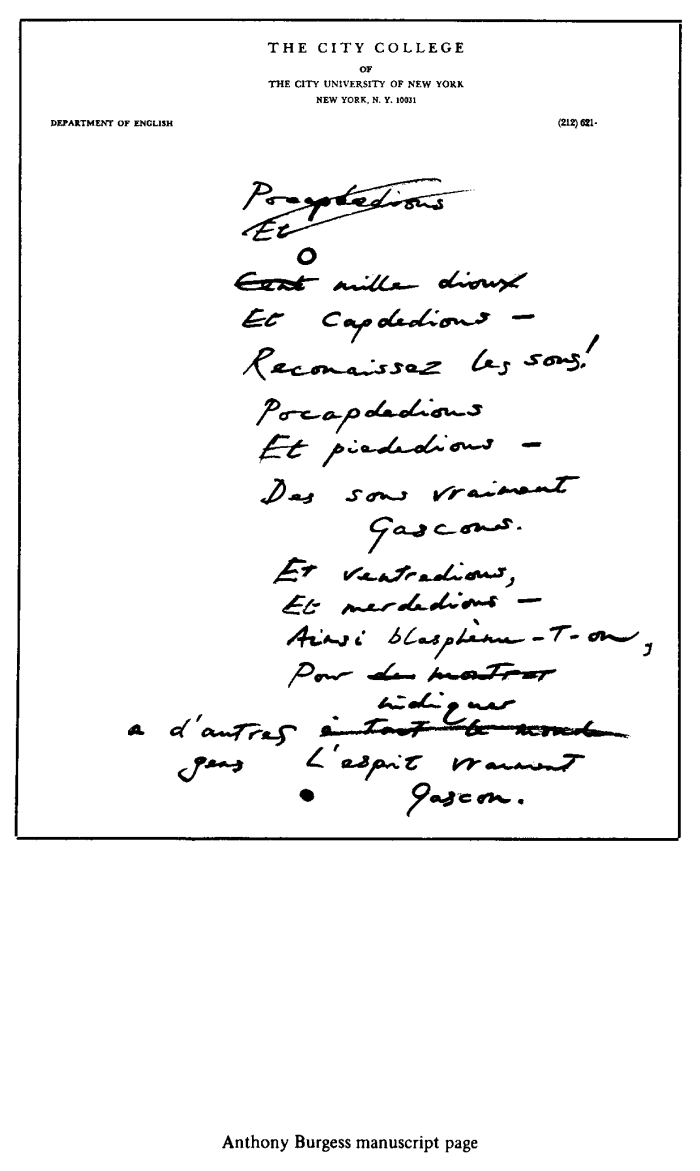 THE CITY COLLEGE
OF
THE CITY UNIVERSITY OF NEW YORK
NEW YORK, N. Y. 10031
DEPARTMENT OF ENGLISH
(212) 621-
Pocapdedious
Et
Cent mille dioux
Et Capdedious —
Reconaissez les sons!
Pocapdedious
Et piededious —
Des sons vraiment
Gascons.
Et ventredious,
Et merdedious —
Ainsi blasphème-T-on,
Pour des montrer
indiquer
a d'autres à tout le monde
gens L'esprit vraiment
Gascon.
Anthony Burgess manuscript page